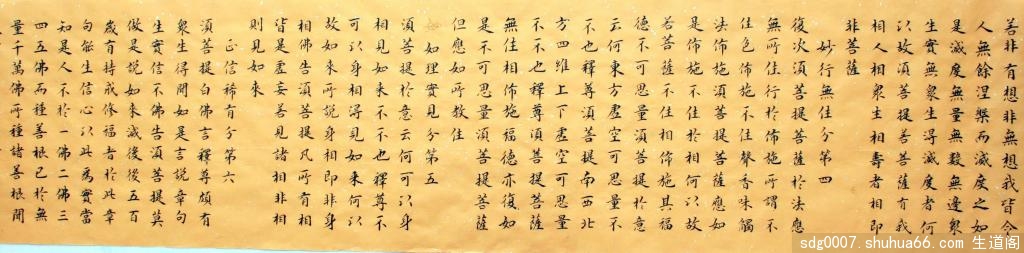 若非有想非無想我皆令
人無餘涅槃而滅度之如
是滅度無量無數無邊衆
生實無衆生得滅度者何
以故須菩提若菩薩有我
相人相衆生相壽者相即
非菩薩
妙行無住分第四
復次須菩提菩薩於法應
無所住行於佈施所謂不
住色佈施不住聲香味觸
法佈施須菩提菩薩應如
是佈施不住於相何以故
若菩薩不住相佈施其福
德不可思量須菩提於意
云何東方虛空可思量不
不也釋尊須菩提南西北
方四維上下虛空可思量
不不也釋尊須菩提菩薩
無住相佈施福德亦復如
是不可思量須菩提菩薩
但應如所教住
如理實見分第五
須菩提於意云何可以身
相見如來不不也釋尊不
可以身相得見如來何以
故如來所說身相即非身
相佛告須菩提凡所有相
皆是虛妄若見諸相非相
則見如來
正信稀有分第六
須菩提白佛言釋尊頗有
衆生得聞如是言說章句
生實信不佛告須菩提莫
作是說如來滅後後五百
歲有持戒修福者於此章
句能生信心以此為實當
知是人不於一佛二佛三
四五佛而種善根已於無
量千萬佛所種諸善根聞
sdg0007.shuhua66.com 生道阁